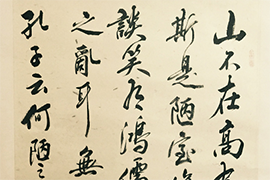 山不在高
斯是陋室
談笑有鴻儒
之亂耳無
孔子云何陋之